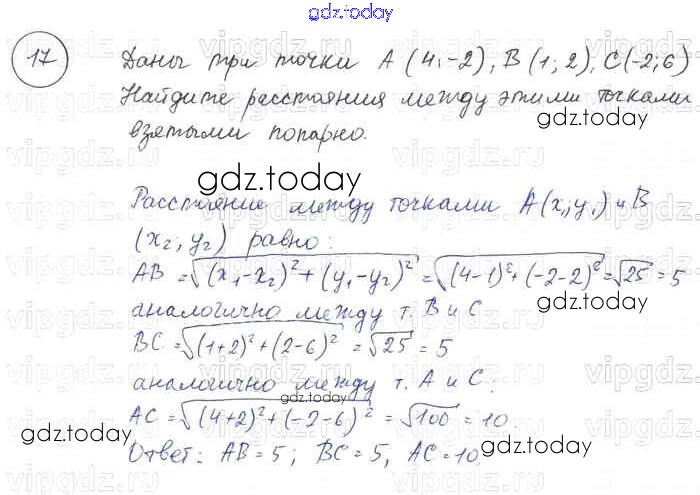 gdz.today
17 Даны три точки A (4;-2), B (1; 2), C(-2;6)
Найдите расстояния между этими точками
взятыми попарно.
gdz.today
gdz.today
Расстояние между точками A(x₁;y₁) и B
(x₂; y₂) равно:
AB = √(x₁-x₂)² + (y₁-y₂)² = √(4-1)² + (-2-2)² = √25 = 5
аналогично между т. B и C
gdz.today
BC = √(1+2)² + (2-6)² = √25 = 5
аналогично между т. A и C:
AC = √(4+2)² + (-2-6)² = √100 = 10.
gdz.today
gdz.today
Ответ: AB = 5; BC = 5, AC = 10.